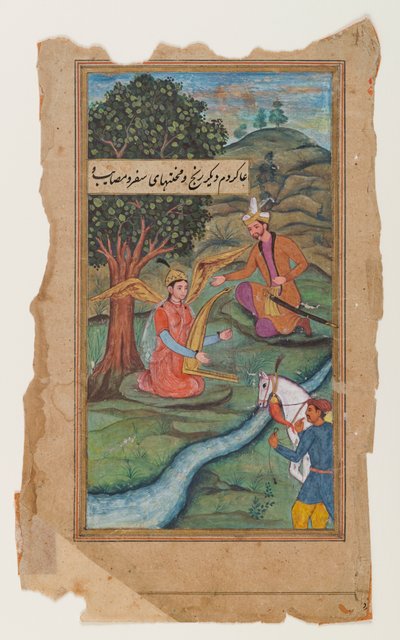 دعا کردم دیگر رنج و محنتهای سفر و مصایب و